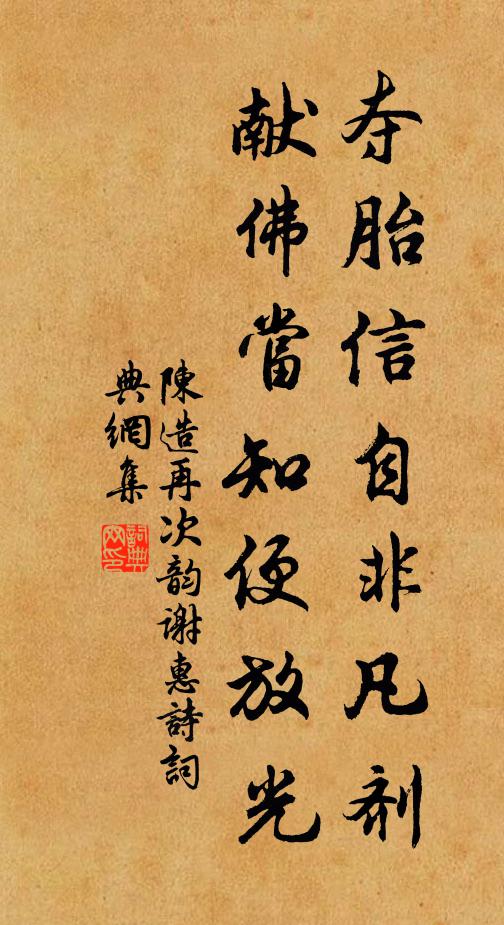 夺胎信自非凡剂
献佛當知便放光
陳造再次韵谢惠詩詞
典網集
詞典网印